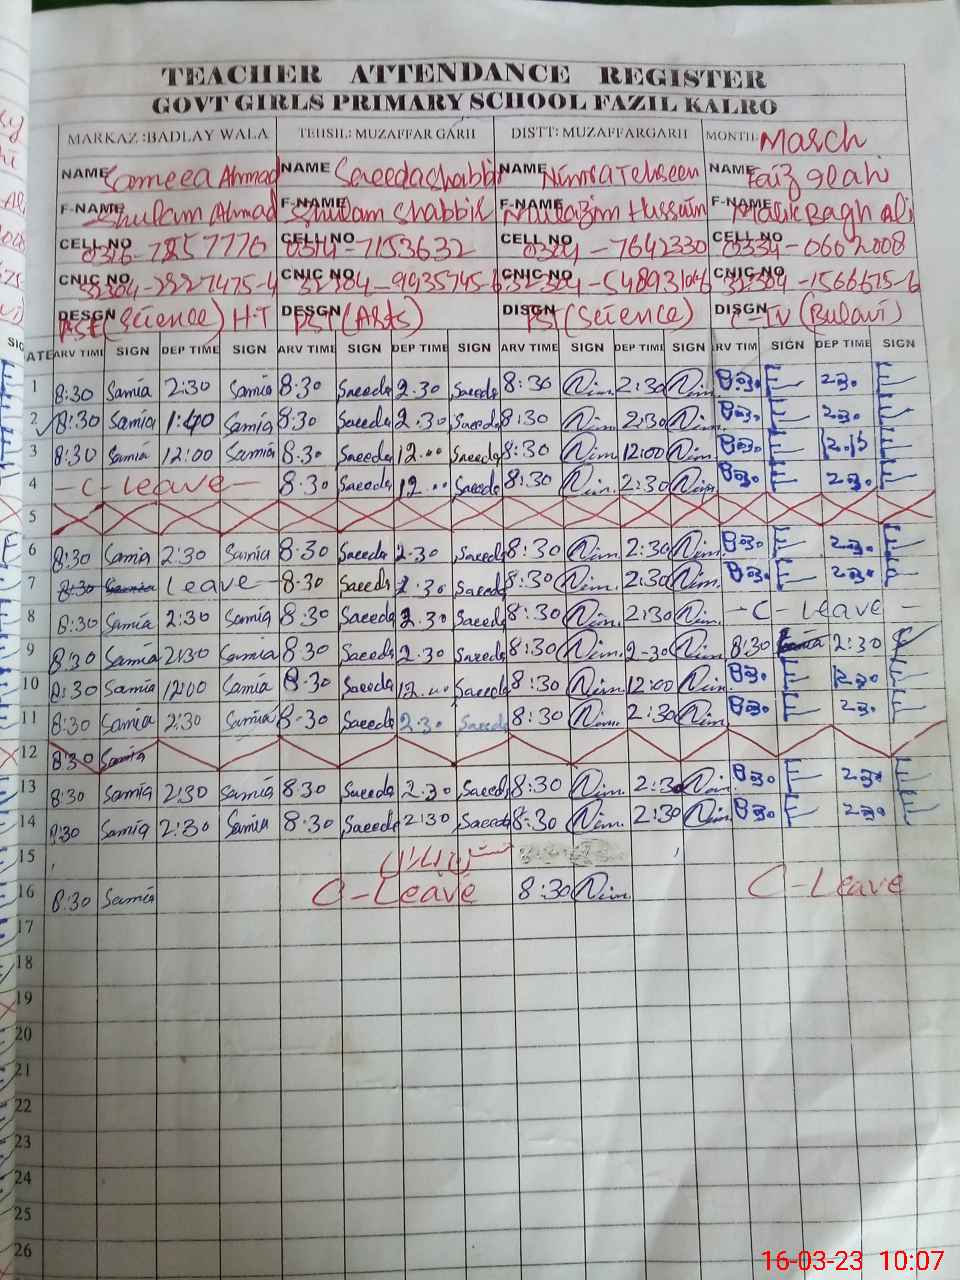 TEACHER ATTENDANCE REGISTER
GOVT GIRLS PRIMARY SCHOOL FAZIL KALRO
MARKAZ :BADLAY WALA TEHSIL: MUZAFFAR GARH DISTT: MUZAFFARGARH MONTH: March
NAME Sameea Ahmad NAME Saeeda Shabbir NAME Nimra Tehseen NAME Faiz elahi
F-NAME Ghulam Ahmad F-NAME Ghulam Shabbir F-NAME Hussain F-NAME Malik Bagh Ali
CELL NO 7257770 CELL NO 7153632 CELL NO 0324-7642330 CELL NO 0334-0602008
CNIC NO CNIC NO CNIC NO CNIC NO
DESGN PST (Science) H-T DESGN PST (Arts) DISGN PST (Science) DISGN C-IV
DATE ARV TIME SIGN DEP TIME SIGN ARV TIME SIGN DEP TIME SIGN ARV TIME SIGN DEP TIME SIGN ARV TIM SIGN DEP TIME SIGN
1 8:30 Samia 2:30 Samia 8:30 Saeeda 2.30 Saeeda 8:30 Nim 2:30 Nim 830 230
2 8:30 Samia 1:40 Samia 8:30 Saeeda 2.30 Saeeda 8:30 Nim 2:30 Nim 830 230
3 8:30 Samia 12:00 Samia 8.30 Saeeda 12.00 Saeeda 8:30 Nim 12:00 Nim 830
4 -C-Leave- 8.30 Saeeda 12.00 Saeeda 8:30 Nim 2:30 Nim 830 230
5
6 8:30 Samia 2:30 Samia 8.30 Saeeda 2.30 Saeeda 8:30 Nim 2:30 Nim 830 230
7 8:30 Samia Leave 8.30 Saeeda 2.30 Saeeda 8:30 Nim 2:30 Nim 830 230
8 8:30 Samia 2:30 Samia 8.30 Saeeda 2.30 Saeeda 8:30 Nim 2:30 Nim -C-Leave-
9 8:30 Samia 2:30 Samia 8.30 Saeeda 2.30 Saeeda 8:30 Nim 2:30 Nim 8:30 2:30
10 8:30 Samia 12:00 Samia 8.30 Saeeda 12.00 Saeeda 8:30 Nim 12:00 Nim 830 230
11 8:30 Samia 2:30 Samia 8.30 Saeeda 2.30 Saeeda 8:30 Nim 2:30 Nim 830 230
12 8:30 Samia
13 8:30 Samia 2:30 Samia 8.30 Saeeda 2.30 Saeeda 8:30 Nim 2:30 Nim 830 230
14 8:30 Samia 2:30 Samia 8.30 Saeeda 2:30 Saeeda 8:30 Nim 2:30 Nim 830 230
15 جشن بہاراں
16 8:30 Samia C-Leave 8:30 Nim C-Leave
17
18
19
20
21
22
23
24
25
26
16-03-23 10:07